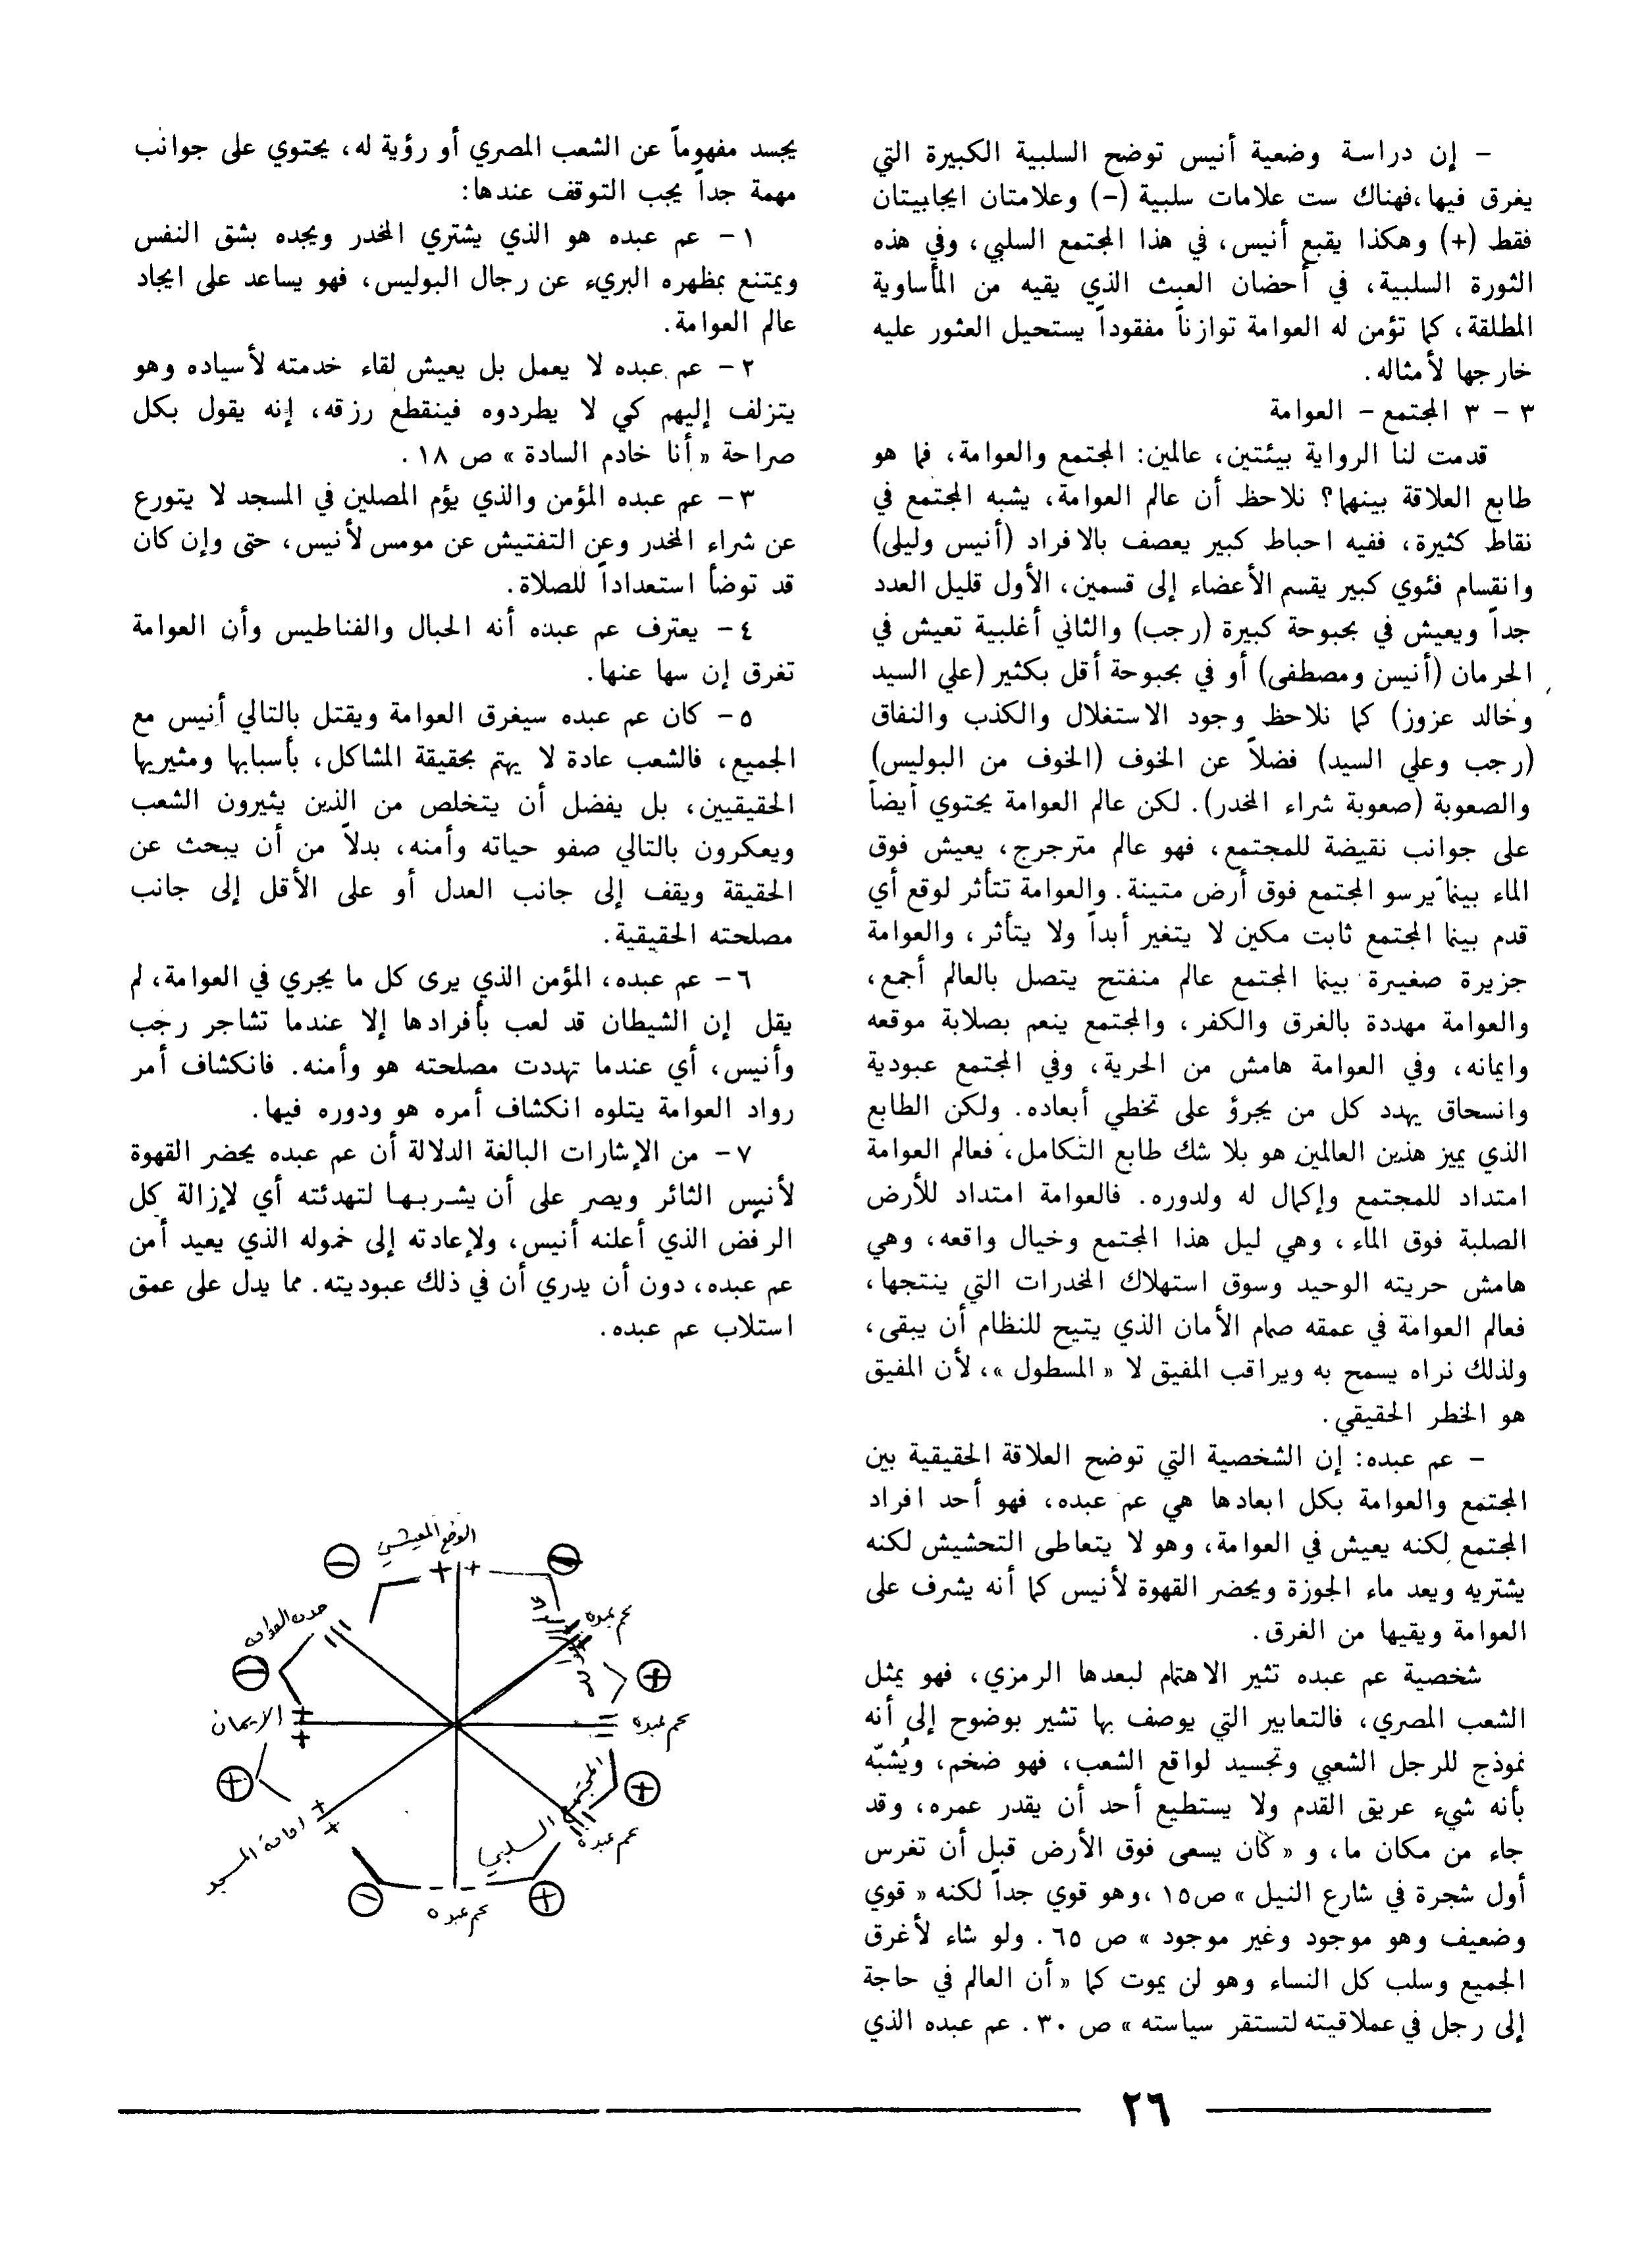 – إن دراسة وضعية أنيس توضح السلبية الكبيرة التي
يغرق فيها، فهناك ست علامات سلبية (–) وعلامتان ايجابيتان
فقط (+) وهكذا يقبع أنيس، في هذا المجتمع السلبي، وفي هذه
الثورة السلبية، في أحضان العبث الذي يقيه من المأساوية
المطلقة، كما تؤمن له العوامة توازناً مفقوداً يستحيل العثور عليه
خارجها لأمثاله.
٣ – ٣ المجتمع – العوامة
قدمت لنا الرواية بيئتين، عالمين: المجتمع والعوامة، فما هو
طابع العلاقة بينهما؟ نلاحظ أن عالم العوامة، يشبه المجتمع في
نقاط كثيرة، ففيه احباط كبير يعصف بالافراد (أنيس وليلى)
وانقسام فئوي كبير يقسم الأعضاء إلى قسمين، الأول قليل العدد
جداً ويعيش في بحبوحة كبيرة (رجب) والثاني أغلبية تعيش في
الحرمان (أنيس ومصطفى) أو في بحبوحة أقل بكثير (علي السيد
وخالد عزوز) كما نلاحظ وجود الاستغلال والكذب والنفاق
(رجب وعلي السيد) فضلاً عن الخوف (الخوف من البوليس)
والصعوبة (صعوبة شراء المخدر). لكن عالم العوامة يحتوي أيضاً
على جوانب نقيضة للمجتمع، فهو عالم مترجرج، يعيش فوق
الماء بينما يرسو المجتمع فوق أرض متينة. والعوامة تتأثر لوقع أي
قدم بينما المجتمع ثابت مكين لا يتغير أبداً ولا يتأثر، والعوامة
جزيرة صغيرة بينما المجتمع عالم منفتح يتصل بالعالم أجمع،
والعوامة مهددة بالغرق والكفر، والمجتمع ينعم بصلابة موقعه
وايمانه، وفي العوامة هامش من الحرية، وفي المجتمع عبودية
وانسحاق يهدد كل من يجرؤ على تخطي أبعاده. ولكن الطابع
الذي يميز هذين العالمين هو بلا شك طابع التكامل، فعالم العوامة
امتداد للمجتمع وإكمال له ولدوره. فالعوامة امتداد للأرض
الصلبة فوق الماء، وهي ليل هذا المجتمع وخيال واقعه، وهي
هامش حريته الوحيد وسوق استهلاك المخدرات التي ينتجها،
فعالم العوامة في عمقه صمام الأمان الذي يتيح للنظام أن يبقى،
ولذلك نراه يسمح به ويراقب المفيق لا « المسطول »، لأن المفيق
هو الخطر الحقيقي.
– عم عبده: إن الشخصية التي توضح العلاقة الحقيقية بين
المجتمع والعوامة بكل ابعادها هي عم عبده، فهو أحد افراد
المجتمع لكنه يعيش في العوامة، وهو لا يتعاطى التحشيش لكنه
يشتريه ويعد ماء الجوزة ويحضر القهوة لأنيس كما أنه يشرف على
العوامة ويقيها من الغرق.
شخصية عم عبده تثير الاهتمام لبعدها الرمزي، فهو يمثل
الشعب المصري، فالتعابير التي يوصف بها تشير بوضوح إلى أنه
نموذج للرجل الشعبي وتجسيد لواقع الشعب، فهو ضخم، ويُشبّه
بأنه شيء عريق القدم ولا يستطيع أحد أن يقدر عمره، وقد
جاء من مكان ما، و « كان يسعى فوق الأرض قبل أن تغرس
أول شجرة في شارع النيل » ص١٥، وهو قوي جداً لكنه « قوي
وضعيف وهو موجود وغير موجود » ص ٦٥. ولو شاء لأغرق
الجميع وسلب كل النساء وهو لن يموت كما « أن العالم في حاجة
إلى رجل في عملاقيته لتستقر سياسته » ص ٣٠. عم عبده الذي
يجسد مفهوماً عن الشعب المصري أو رؤية له، يحتوي على جوانب
مهمة جداً يجب التوقف عندها:
١– عم عبده هو الذي يشتري المخدر ويجده بشق النفس
ويمتنع بمظهره البريء عن رجال البوليس، فهو يساعد على ايجاد
عالم العوامة.
٢– عم عبده لا يعمل بل يعيش لقاء خدمته لأسياده وهو
يتزلف إليهم كي لا يطردوه فينقطع رزقه، إنه يقول بكل
صراحة « أنا خادم السادة » ص ١٨.
٣– عم عبده المؤمن والذي يؤم المصلين في المسجد لا يتورع
عن شراء المخدر وعن التفتيش عن مومس لأنيس، حتى وإن كان
قد توضأ استعداداً للصلاة.
٤– يعترف عم عبده أنه الحبال والفناطيس وأن العوامة
تغرق إن سها عنها.
٥– كان عم عبده سيغرق العوامة ويقتل بالتالي أنيس مع
الجميع، فالشعب عادة لا يهتم بحقيقة المشاكل، بأسبابها ومثيريها
الحقيقيين، بل يفضل أن يتخلص من الذين يثيرون الشعب
ويعكرون بالتالي صفو حياته وأمنه، بدلاً من أن يبحث عن
الحقيقة ويقف إلى جانب العدل أو على الأقل إلى جانب
مصلحته الحقيقية.
٦– عم عبده، المؤمن الذي يرى كل ما يجري في العوامة، لم
يقل إن الشيطان قد لعب بأفرادها إلا عندما تشاجر رجب
وأنيس، أي عندما تهددت مصلحته هو وأمنه. فانكشاف أمر
رواد العوامة يتلوه انكشاف أمره هو ودوره فيها.
٧– من الإشارات البالغة الدلالة أن عم عبده يحضر القهوة
لأنيس الثائر ويصر على أن يشربها لتهدئته أي لإزالة كل
الرفض الذي أعلنه أنيس، ولإعادته إلى خموله الذي يعيد أمن
عم عبده، دون أن يدري أن في ذلك عبوديته. مما يدل على عمق
استلاب عم عبده.
الوضع المعيشي
عم عبده
خدمة العوامة
عم عبده
الإيمان
المجتمع السلبي
عم عبده
امامة المسجد
عم عبده
٢٦